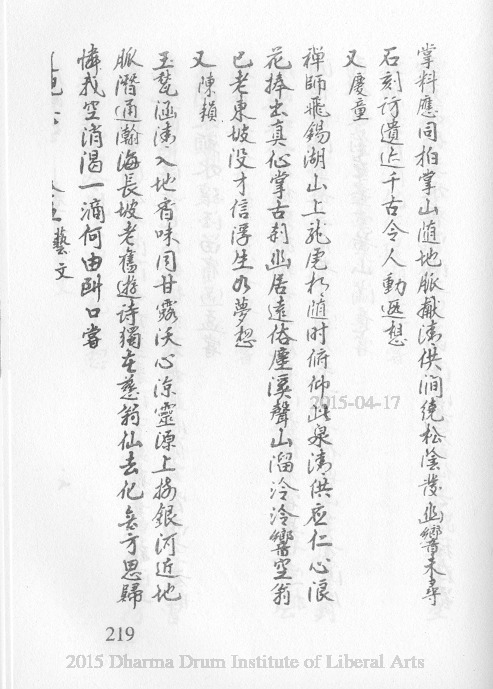 掌料應同拍掌山随地脈獻清供澗繞松陰發幽響未尋
石刻訪遺迹千古令人動遐想
又 慶童
禅師飛錫湖山上龍虎相随时俯仰此泉清供应仁心浪
花捧出真仙掌古刹幽居遠俗塵溪聲山溜冷冷響空翁
已老東坡没才信浮生如夢想
又 陳頴
玉甃涵清入地香味同甘露沃心涼靈源上接銀河近地
脈潛通瀚海長坡老舊遊詩獨在慈翁仙去化無方思歸
憐我空消渴一滴何由酙口嘗
藝文
219
2015-04-17
2015 Dharma Drum Institute of Liberal Arts